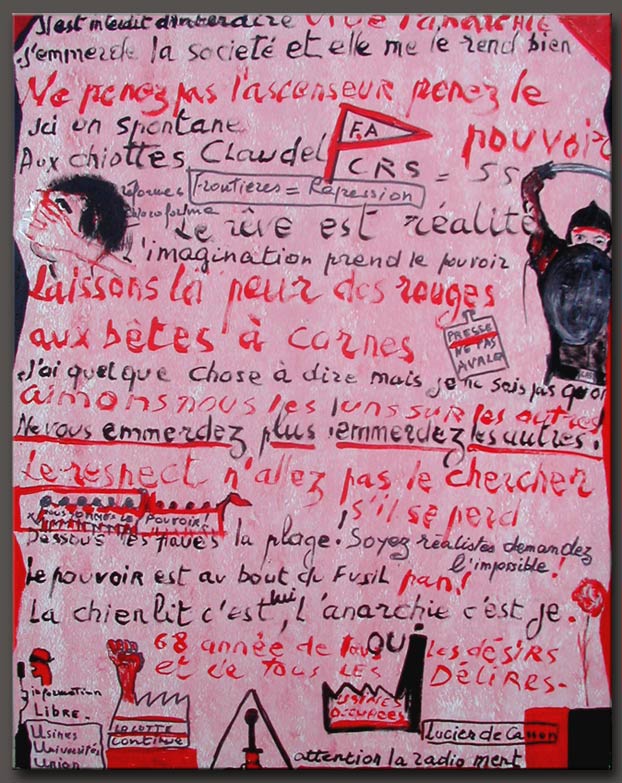 Il est interdit d'interdire VIVE l'anarchie
J'emmerde la societé et elle me le rend bien
Ne penez pas l'ascenseur penez le
pouvoir
Ici on spontane
F.A
Aux chiottes Claudel
CRS = SS
réforme
chloroforme
Frontières = Répression
Le rêve est réalité
L'imagination prend le pouvoir
Laissons la peur des rouges
aux bêtes à cornes
PRESSE
NE PAS
AVALER
J'ai quelque chose à dire mais je ne sais pas quoi
aimons nous les uns sur les autres
Ne vous emmerdez plus ! emmerdez les autres !
Le respect n'allez pas le chercher
s'il se perd
POUVOIR
Dessous les pavés la plage ! Soyez réalistes demandez
l'impossible !
Le pouvoir est au bout du Fusil pan !
La chienlit c'est lui, L'anarchie c'est je.
68 année de tous OUI les désirs
et de tous LES DÉLIRES-
information
LIBRE-
Usines
Universités
Union
LA LUTTE
continue
USINES
OCCUPEES
Lucien de Cannon
attention la radio ment